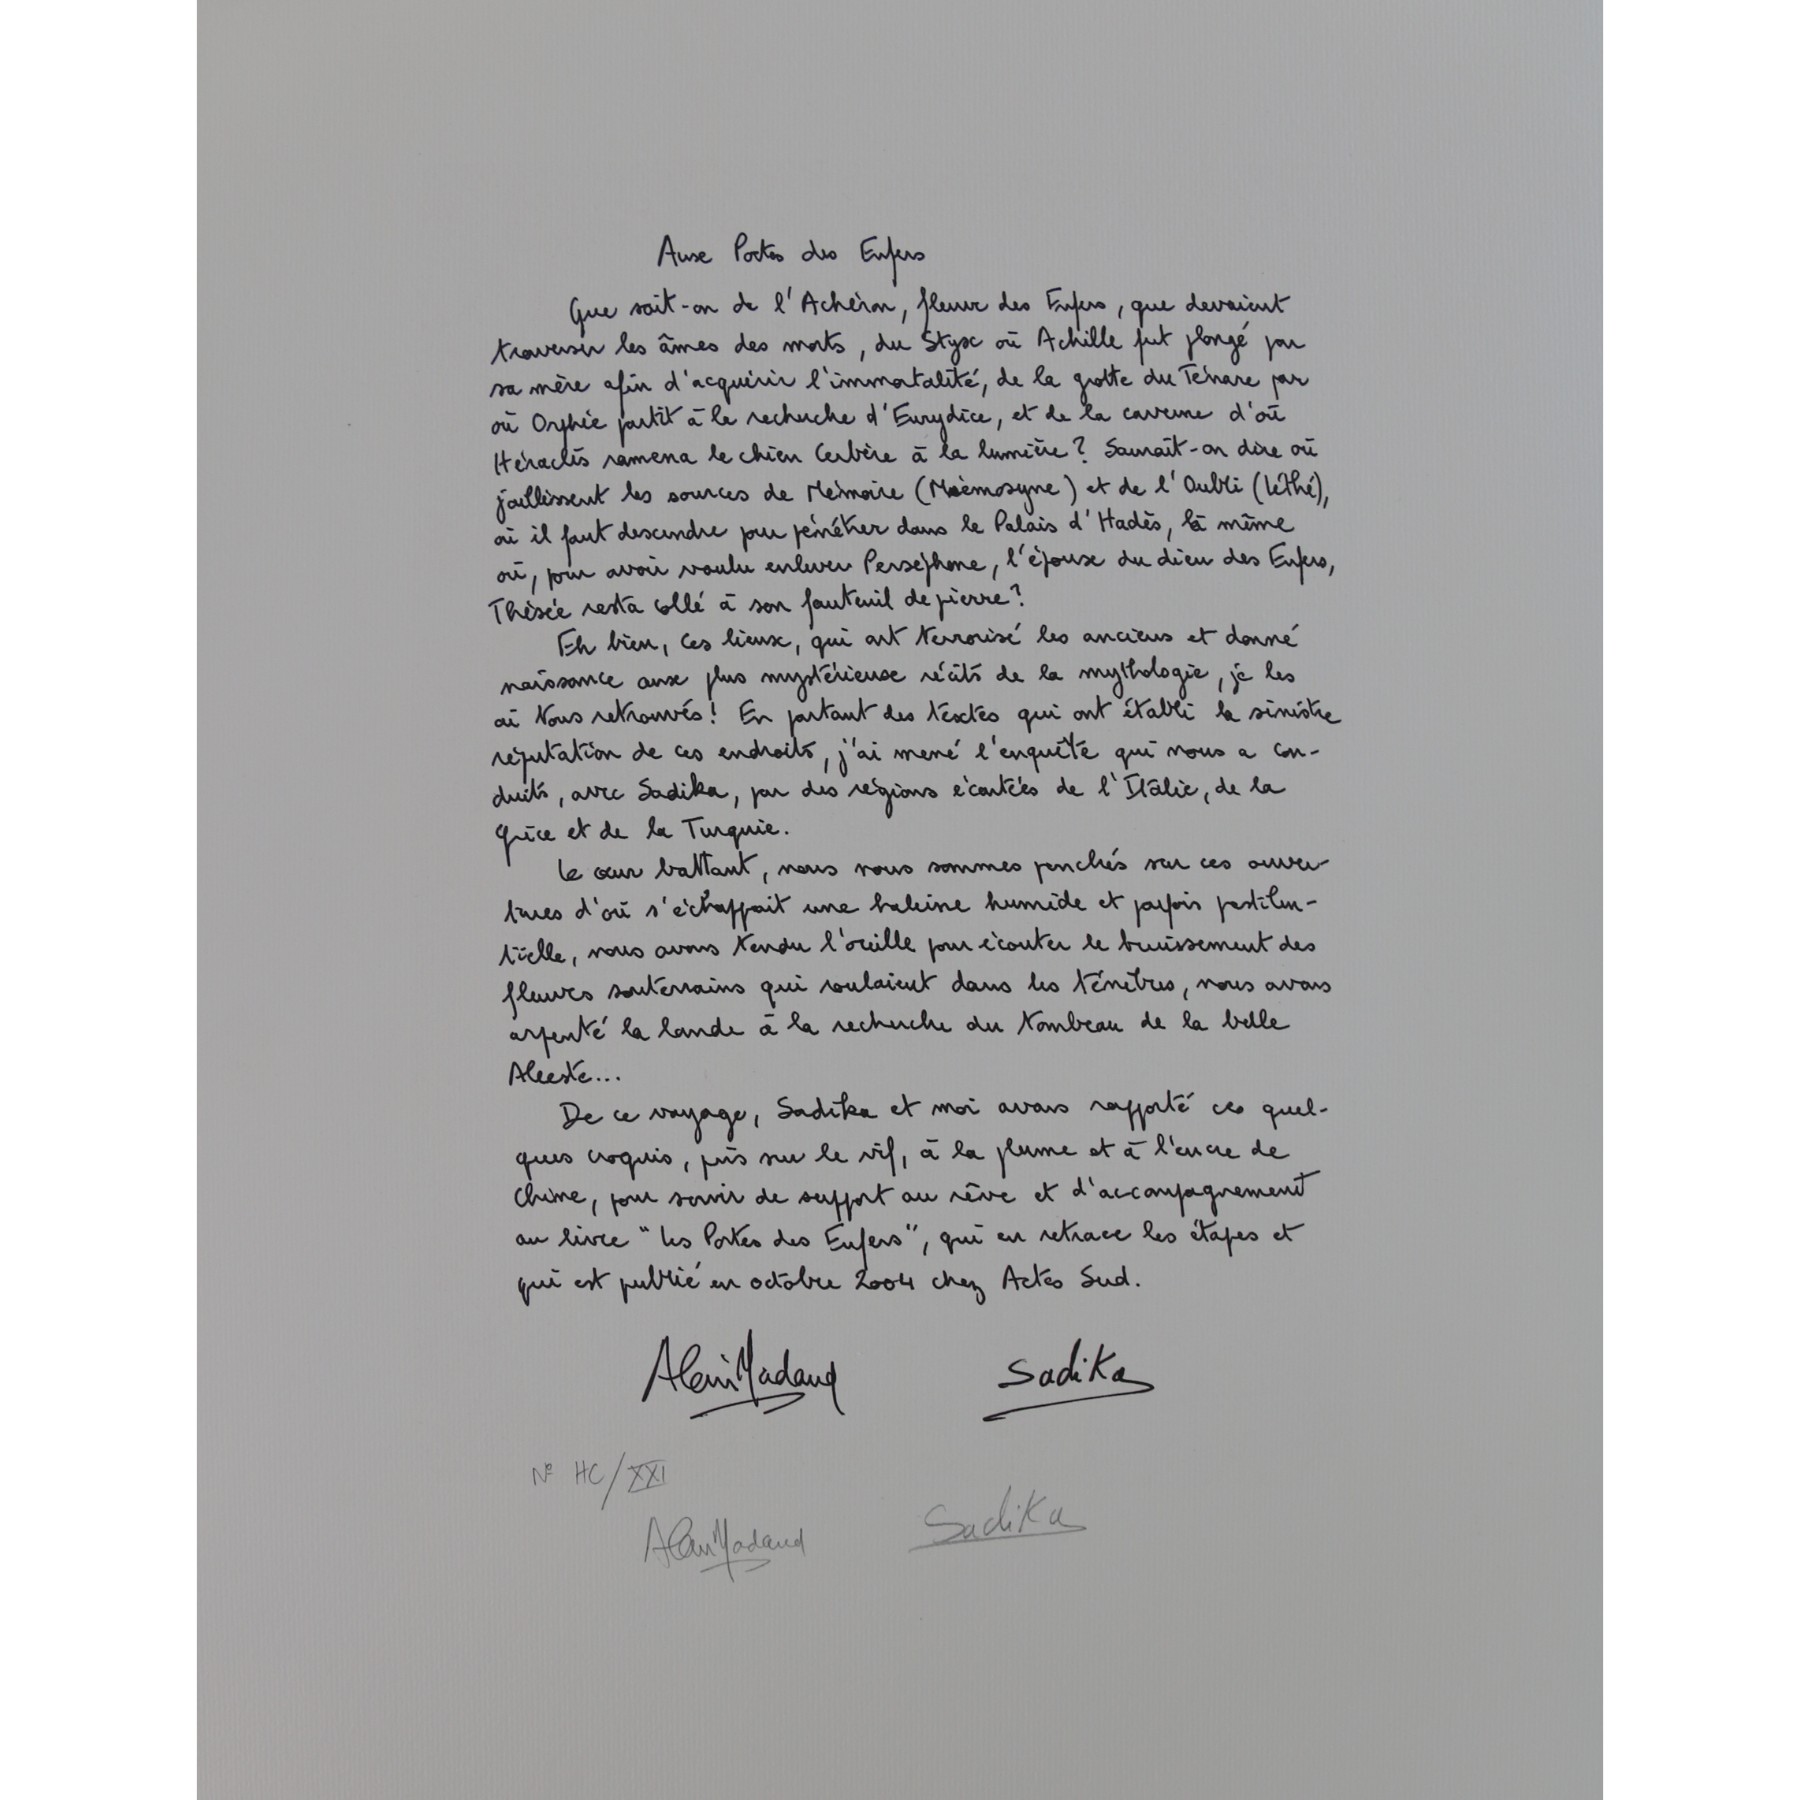 Aux Portes des Enfers
Que sait-on de l'Achéron, fleuve des Enfers, que devaient
traverser les âmes des morts, du Styx où Achille fut plongé par
sa mère afin d'acquérir l'immortalité, de la grotte du Ténare par
où Orphée partit à la recherche d'Eurydice, et de la caverne d'où
Héraclès ramena le chien Cerbère à la lumière ? Saurait-on dire où
jaillissent les sources de Mémoire (Mnémosyne) et de l'Oubli (Léthé),
où il faut descendre pour pénétrer dans le Palais d'Hadès, là même
où, pour avoir voulu enlever Perséphone, l'épouse du dieu des Enfers,
Thésée resta collé à son fauteuil de pierre ?
Eh bien, ces lieux, qui ont terrorisé les anciens et donné
naissance aux plus mystérieux récits de la mythologie, je les
ai tous retrouvés ! En partant des textes qui ont établi la sinistre
réputation de ces endroits, j'ai mené l'enquête qui nous a con-
duits, avec Sadika, par des régions écartées de l'Italie, de la
Grèce et de la Turquie.
Le cœur battant, nous nous sommes penchés sur ces ouver-
tures d'où s'échappait une haleine humide et parfois pestilen-
tielle, nous avons tendu l'oreille pour écouter le bruissement des
fleuves souterrains qui roulaient dans les ténèbres, nous avons
arpenté la lande à la recherche du tombeau de la belle
Alceste...
De ce voyage, Sadika et moi avons rapporté ces quel-
ques croquis, pris sur le vif, à la plume et à l'encre de
Chine, pour servir de support au rêve et d'accompagnement
au livre "Les Portes des Enfers", qui en retrace les étapes et
qui est publié en octobre 2004 chez Actes Sud.
Alain Nadaud Sadika
N° HC/XXI
Alain Nadaud Sadika